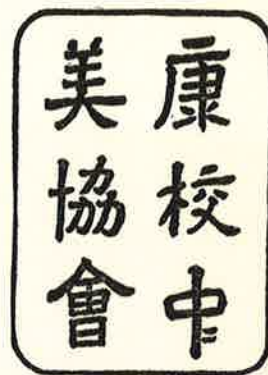 康校中〻
美協會